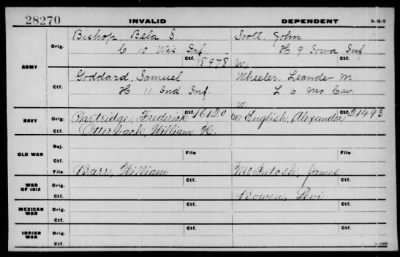 28270 INVALID DEPENDENT
ARMY
Orig. Bishop, Bela S. Scott, John
C 10 Wis Inf H 9 Iowa Inf
Ctf. 8978 W.
Goddard, Samuel Wheeler, Leander M.
H 11 Ind Inf L 6 Mo Cav
Ctf. W.
NAVY
Orig. Partridge, Frederick 16120 W. English, Alexander 21493
Ctf. William H.
OLD WAR
Rej.
Ctf. Ctf.
File Barr, William File McIntosh, James
WAR OF 1812
Orig. Ctf. Bowen, Levi
Ctf.
MEXICAN WAR
Orig. Ctf.
INDIAN WAR
Orig. Ctf.